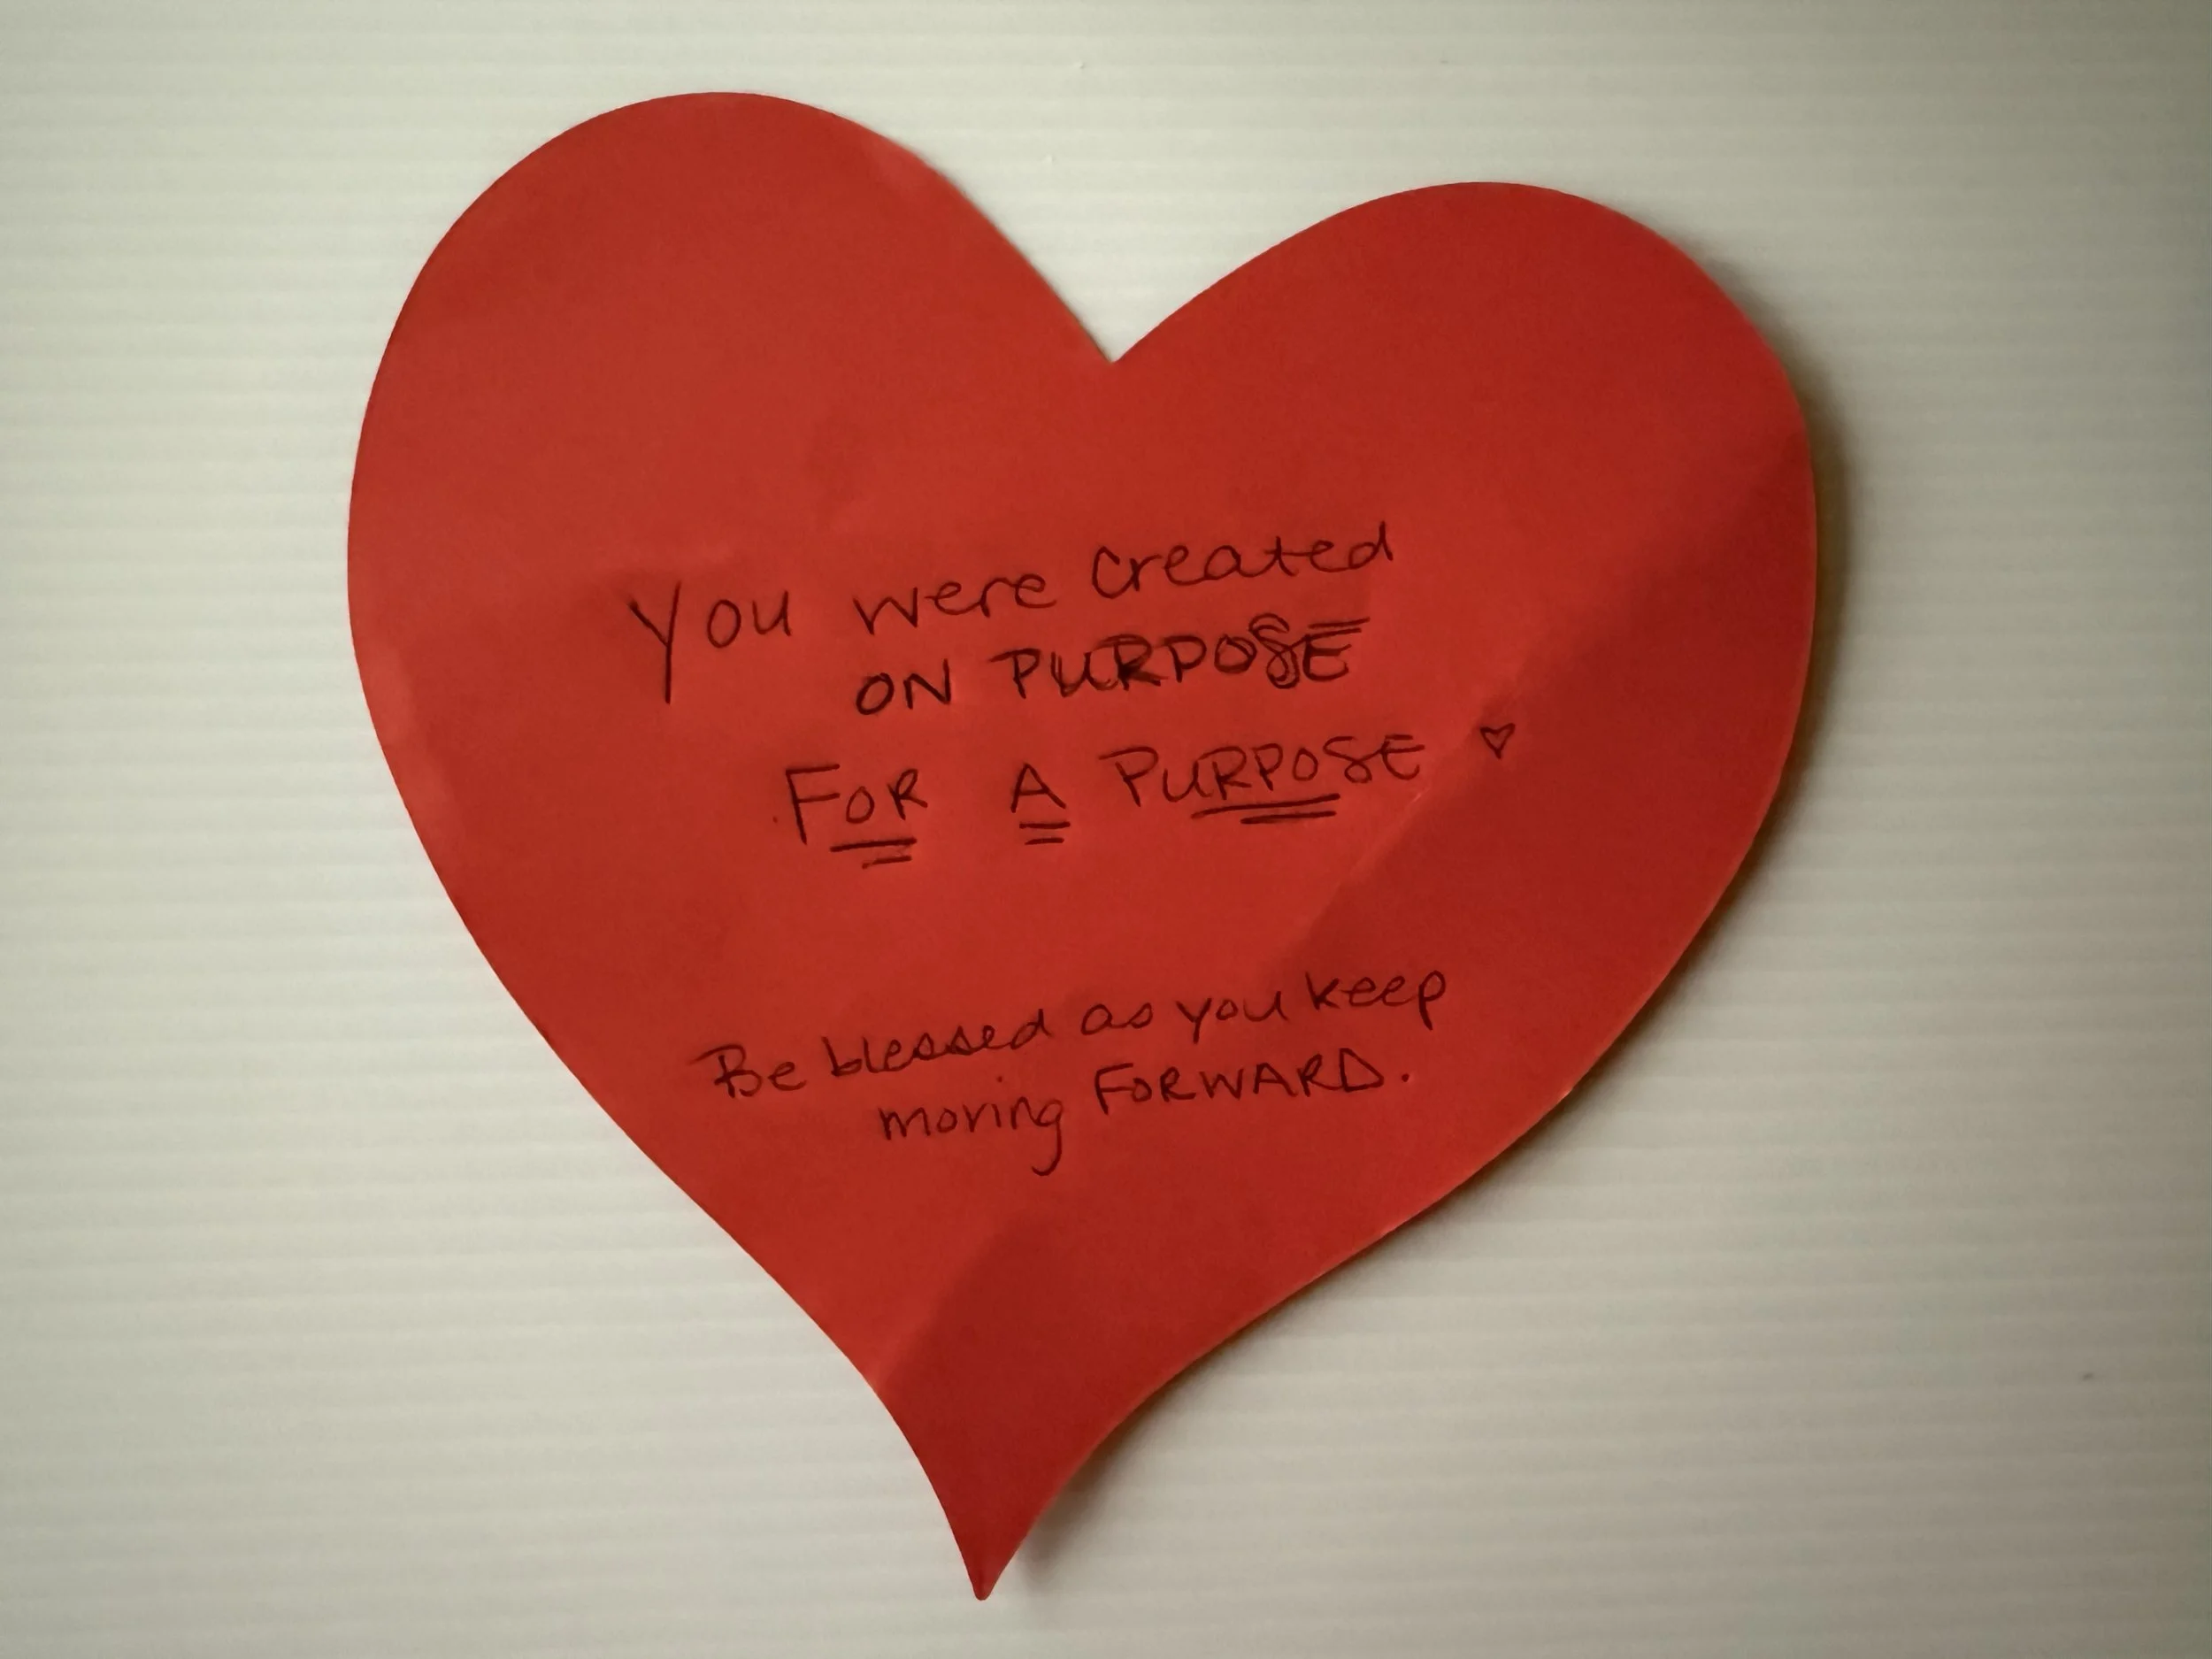 You were created
ON PURPOSE
FOR A PURPOSE ♡
Be blessed as you keep
moving FORWARD.